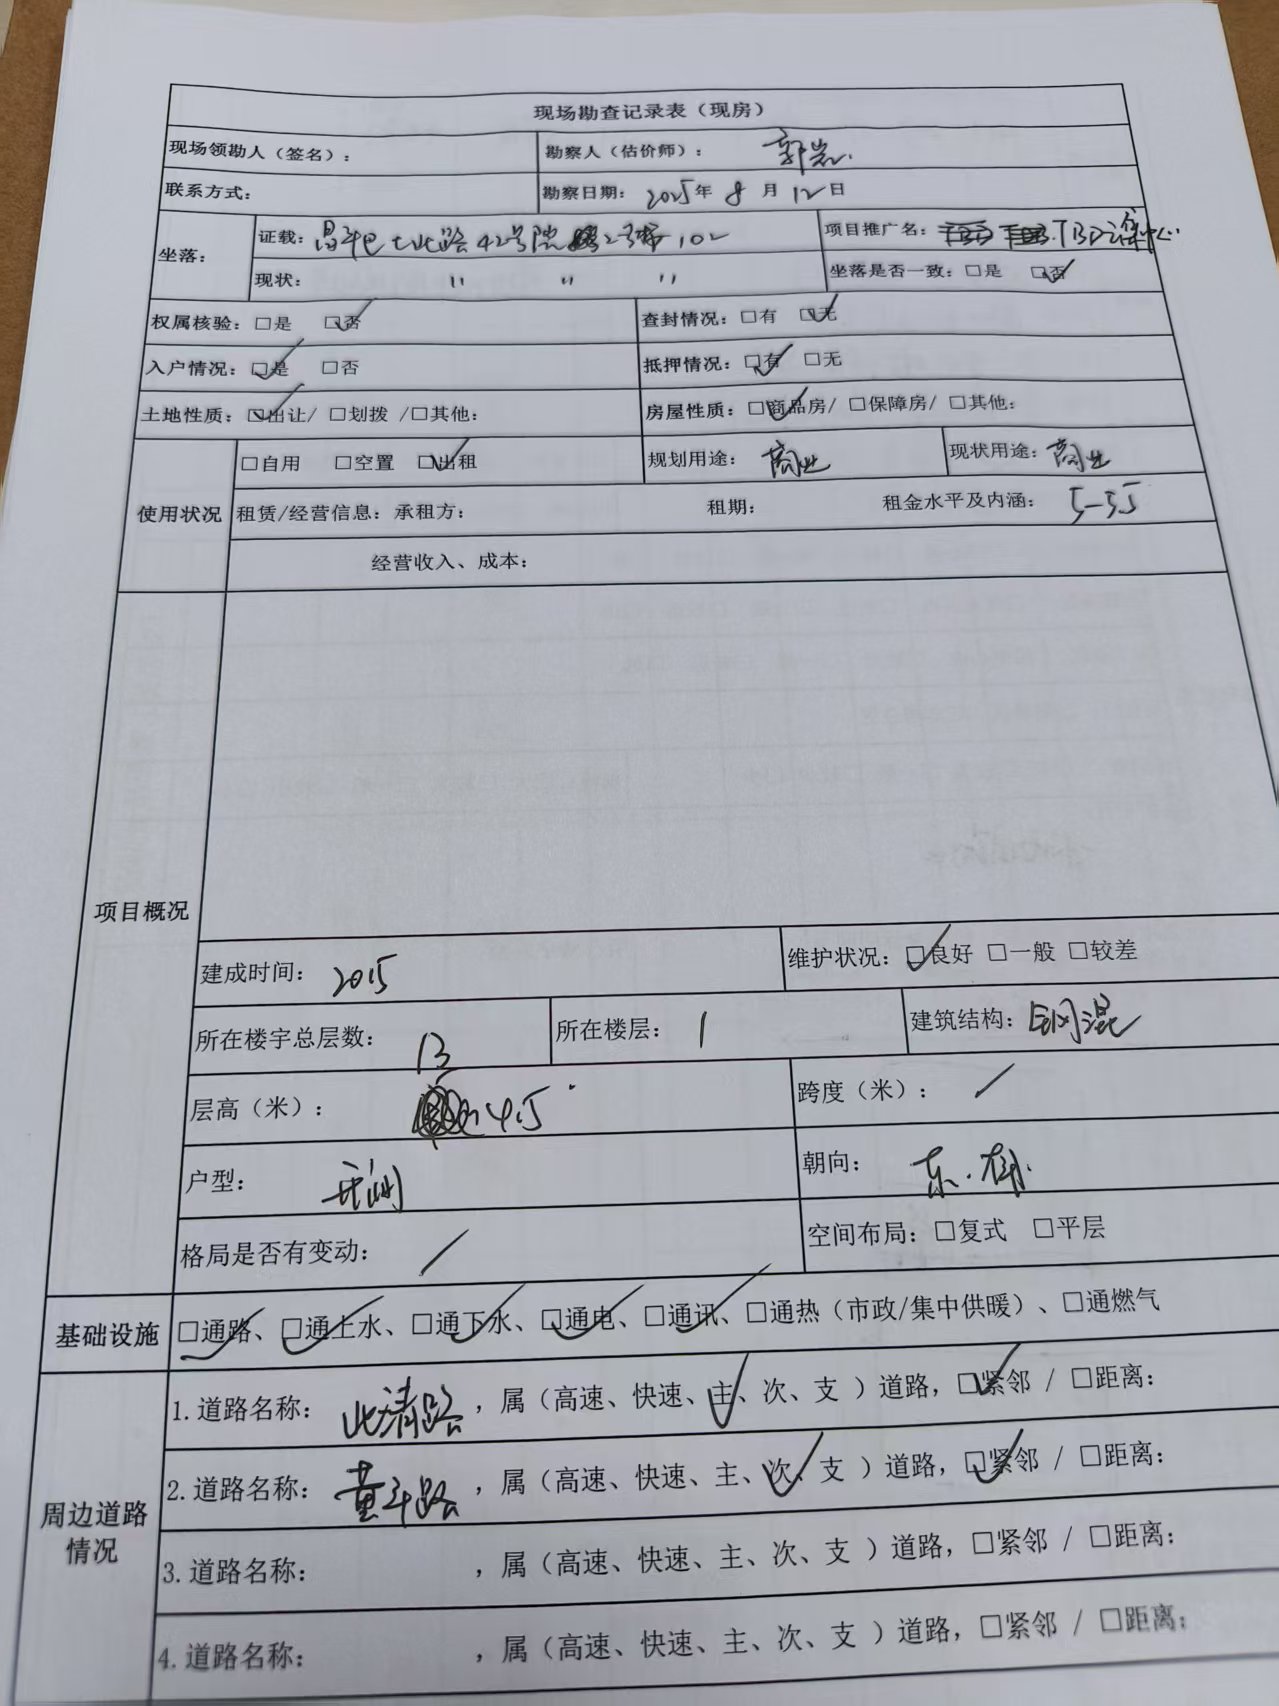 现场勘查记录表（现房）
现场领勘人（签名）： 勘察人（估价师）： 郭岩
联系方式： 勘察日期： 2025年 8 月 12日
坐落： 证载： 昌平区七北路42号院 2号楼 102 项目推广名： TBD
现状： 〃 〃 〃 坐落是否一致：□是 ☑否
权属核验：□是 ☑否 查封情况：□有 ☑无
入户情况：☑是 □否 抵押情况：☑有 □无
土地性质：☑出让/ □划拨 /□其他： 房屋性质：☑商品房/ □保障房/ □其他：
使用状况 □自用 □空置 ☑出租 规划用途： 商业 现状用途： 商业
租赁/经营信息：承租方： 租期： 租金水平及内涵： 5-5.5
经营收入、成本：
项目概况
建成时间： 2015 维护状况：☑良好 □一般 □较差
所在楼宇总层数： 13 所在楼层： 1 建筑结构： 钢混
层高（米）： 4.5 跨度（米）： /
户型： 开间 朝向： 东.南
格局是否有变动： / 空间布局：□复式 □平层
基础设施 ☑通路、☑通上水、☑通下水、☑通电、☑通讯、□通热（市政/集中供暖）、□通燃气
周边道路情况
1.道路名称： 北清路 ，属（高速、快速、主✓、次、支 ）道路，☑紧邻 / □距离：
2.道路名称： 黄平路 ，属（高速、快速、主、次✓、支 ）道路，☑紧邻 / □距离：
3.道路名称： ，属（高速、快速、主、次、支 ）道路，□紧邻 / □距离：
4.道路名称： ，属（高速、快速、主、次、支 ）道路，□紧邻 / □距离：